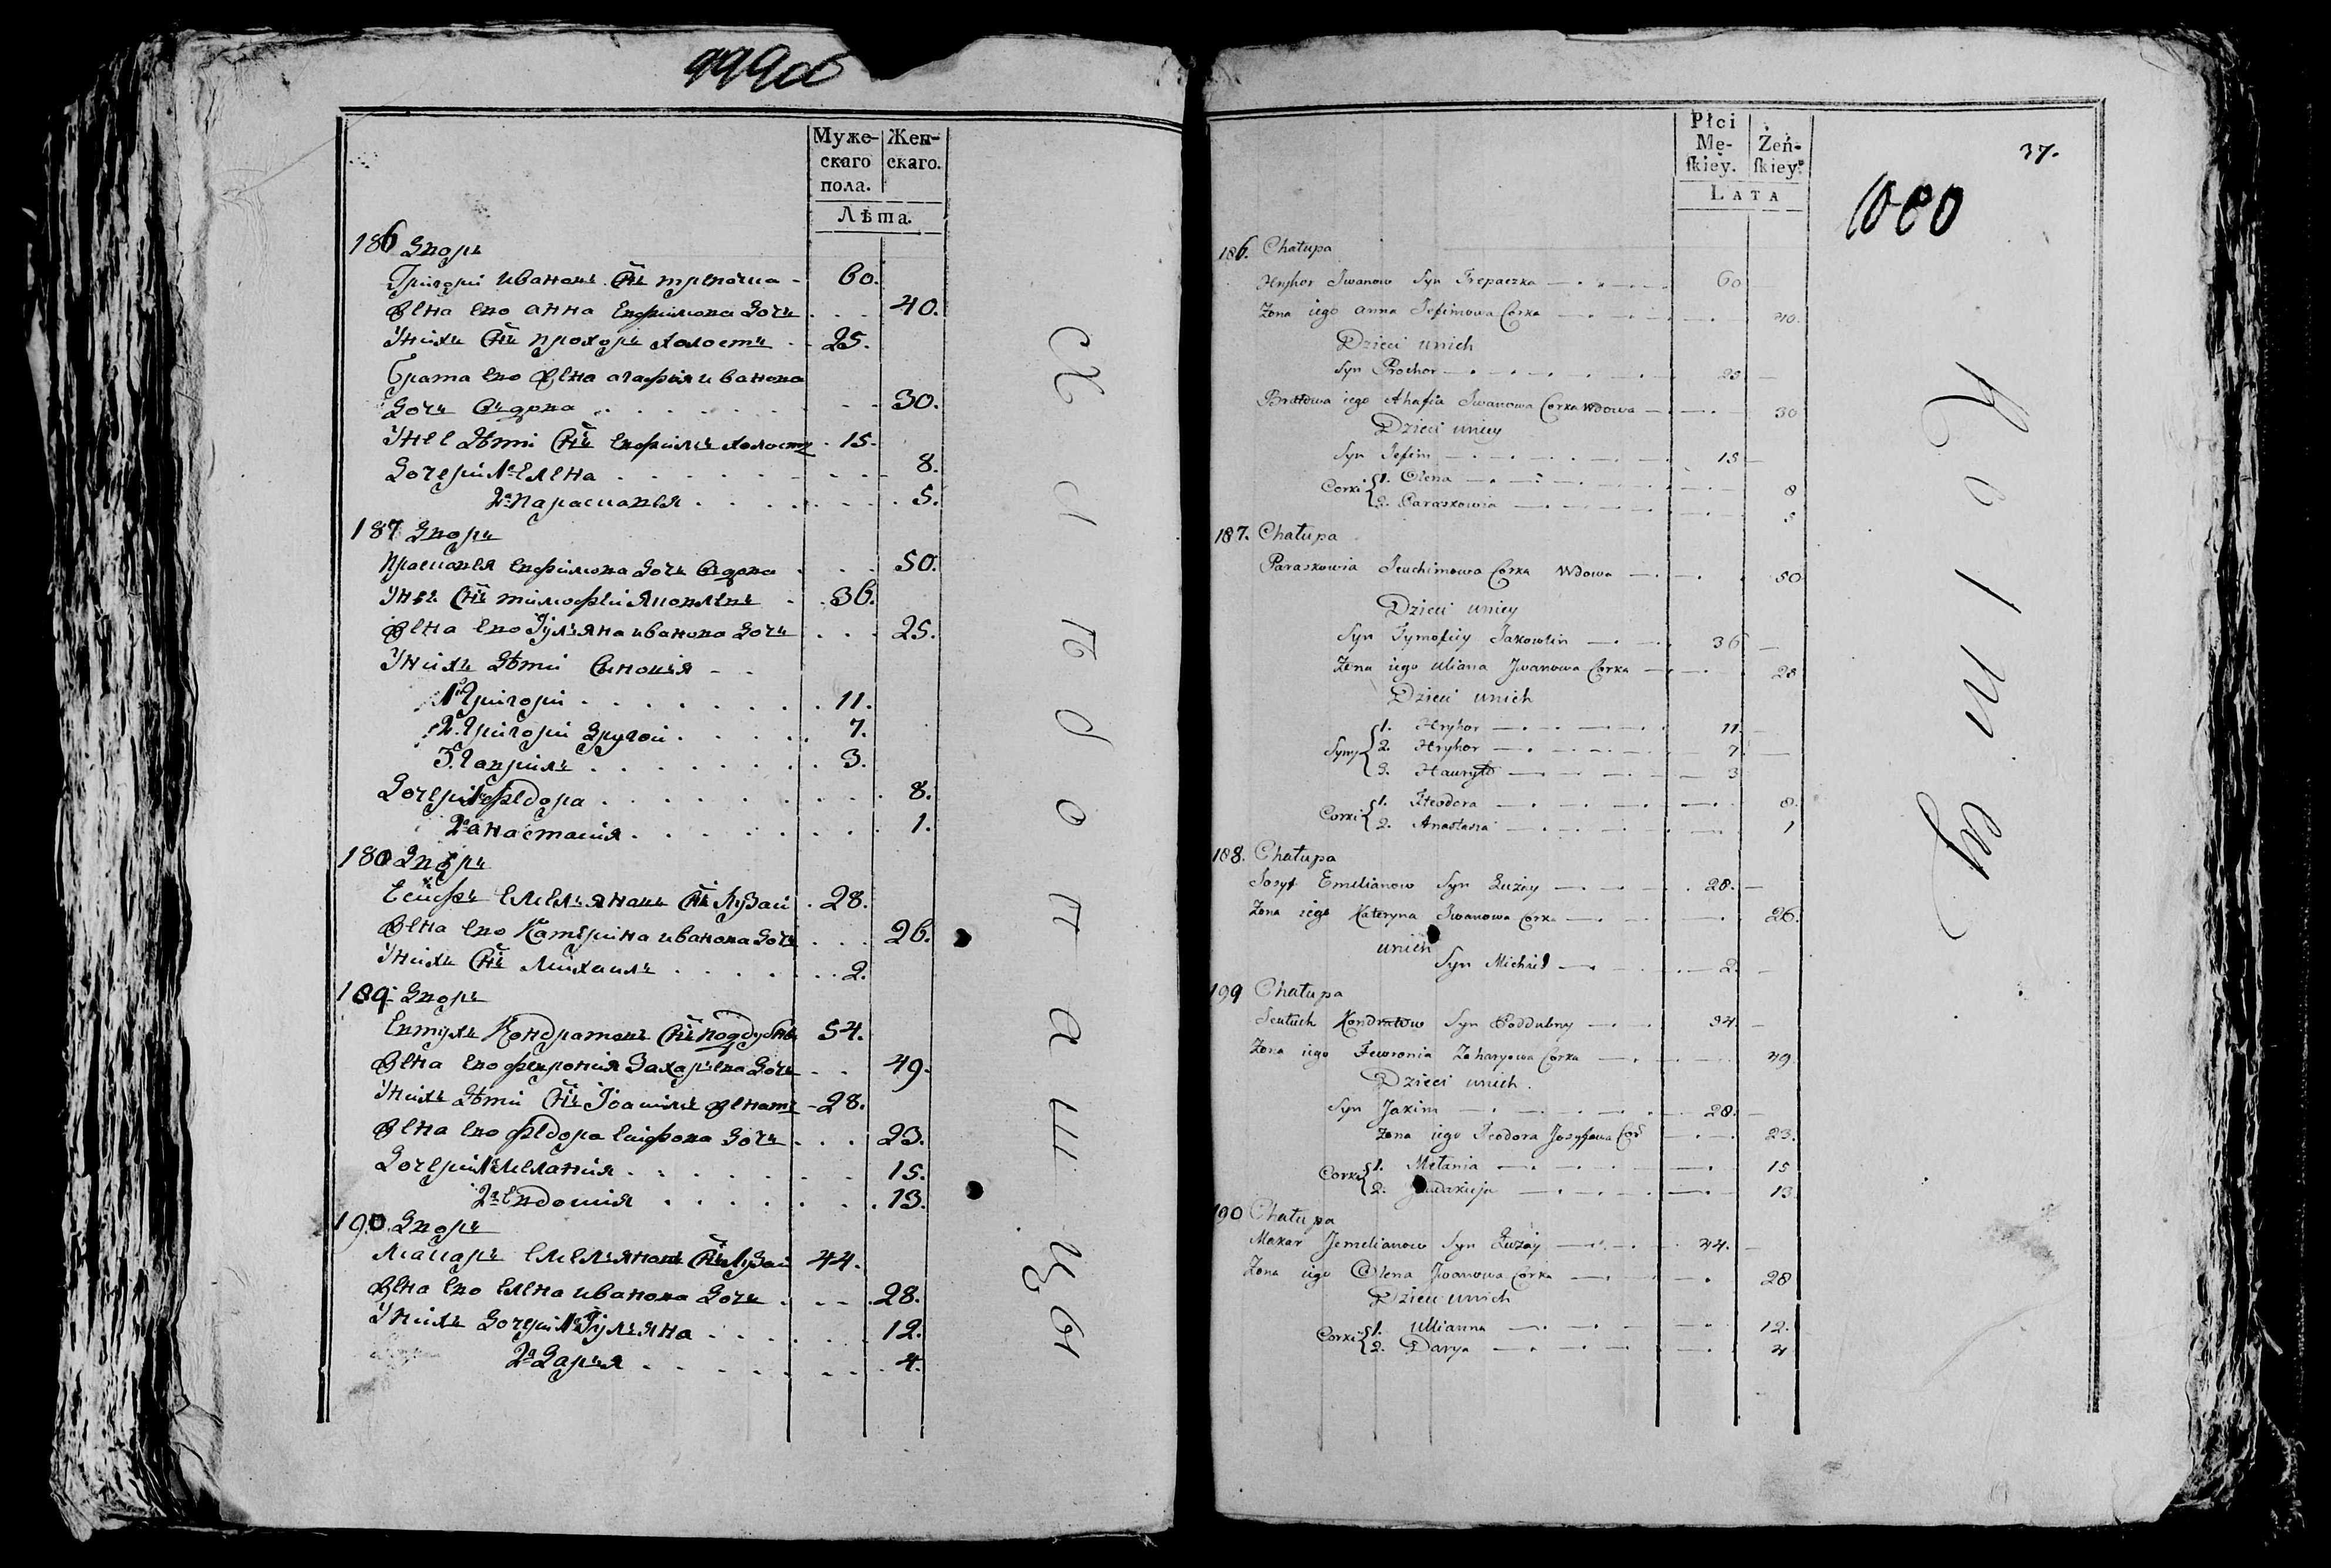 999об
Муже-
скаго
пола.
Жен-
скаго.
Лѣта.
186 Дворъ
Григори Ивановъ Снъ трепочка - 60.
Жена ево анна Ефимова Дочь . . . 40.
Унихъ Снъ прохоръ холостъ - 25.
Брата ево Жена агафия иванова
Дочь Вдова . . . 30.
Унее дѣти Снъ Ефимъ холостъ - 15.
Дочери 1я Елена . . . 8.
2я параскавья . . . 5.
187 Дворъ
Праскавья Ефимова Дочь Вдова . . . 50.
Унее Снъ тимофѣи Яковлевъ - 36.
Жена ево Іулъяна иванова Дочь . . . 25.
Унихъ дѣти Сыновія - -
1й Григори . . . 11.
2. Григори Другои . . . 7.
3. Гаврилъ . . . 3.
Дочери 1я федора . . . 8.
2я анастасия . . . 1.
188 Дворъ
Есифъ Емельяновъ Снъ Лузаи . 28.
Жена ево Катерина иванова Дочь . . . 26.
Унихъ Снъ Михаилъ . . . 2.
189 Дворъ
Евтухъ Кондратовъ Снъ поддубны 54.
Жена ево феврония Захарьева Дочь . . 49.
Унихъ дѣти Снъ Іоакимъ женатъ - 28.
Жена ево федора Есифова Дочь . . . 23.
Дочери 1я Мелания . . . 15.
2я Евдокия . . . 13.
190. Дворъ
Макаръ Емельяновъ Снъ Лузаи 44.
Жена ево Елена иванова Дочь . - - . 28.
Унихъ Дочери 1я Іулъяна . . . 12.
2я Дарья . . . 4.
Płci
Mę-
ſkiey.
Żeń-
ſkiey.
LATA
37.
1000
186. Chałupa
Hryhor Iwanow Syn Trepaczka 60
Zona iego anna Jefimowa Corka 40.
Dzieci unich
Syn Prochor 25
Bratowa iego Ahafia Iwanowa Corka Wdowa 30
Dzieci uniey
Syn Jefim 15
Corki 1. Olena 8
2. Paraskowia 5
187. Chałupa
Paraskowia Jeuchimowa Corka Wdowa 50
Dzieci uniey
Syn Tymofiey Jakowlew 36
Zena iego Uliana Jwanowa Corka 25
Dzieci unich
Syny 1. Hryhor 11.
2. Hryhor 7.
3. Hauryło 3
Corki 1. Fteodora 8.
2. Anastasia 1
188. Chałupa
Josyf Emelianow Syn Łuzay 28.
Zona iego Kateryna Iwanowa Corka 26.
unich
Syn Michał 2.
199 Chałupa
Jeutuch Kondratow Syn Poddubny 54.
Zona iego Fewronia Zaharyewa Corka 49
Dzieci unich.
Syn Jakim 28.
Zona iego Teodora Josyfowa Cor 23.
Corki 1. Mełania 15
2. Jeudakieja 13
190 Chałupa
Makar Jemelianow Syn Łuzay 44.
Zona iego Olena Jwanowa Corka 28
Dzieci unich
Corki 1. Ulianna 12.
2. Darya 4